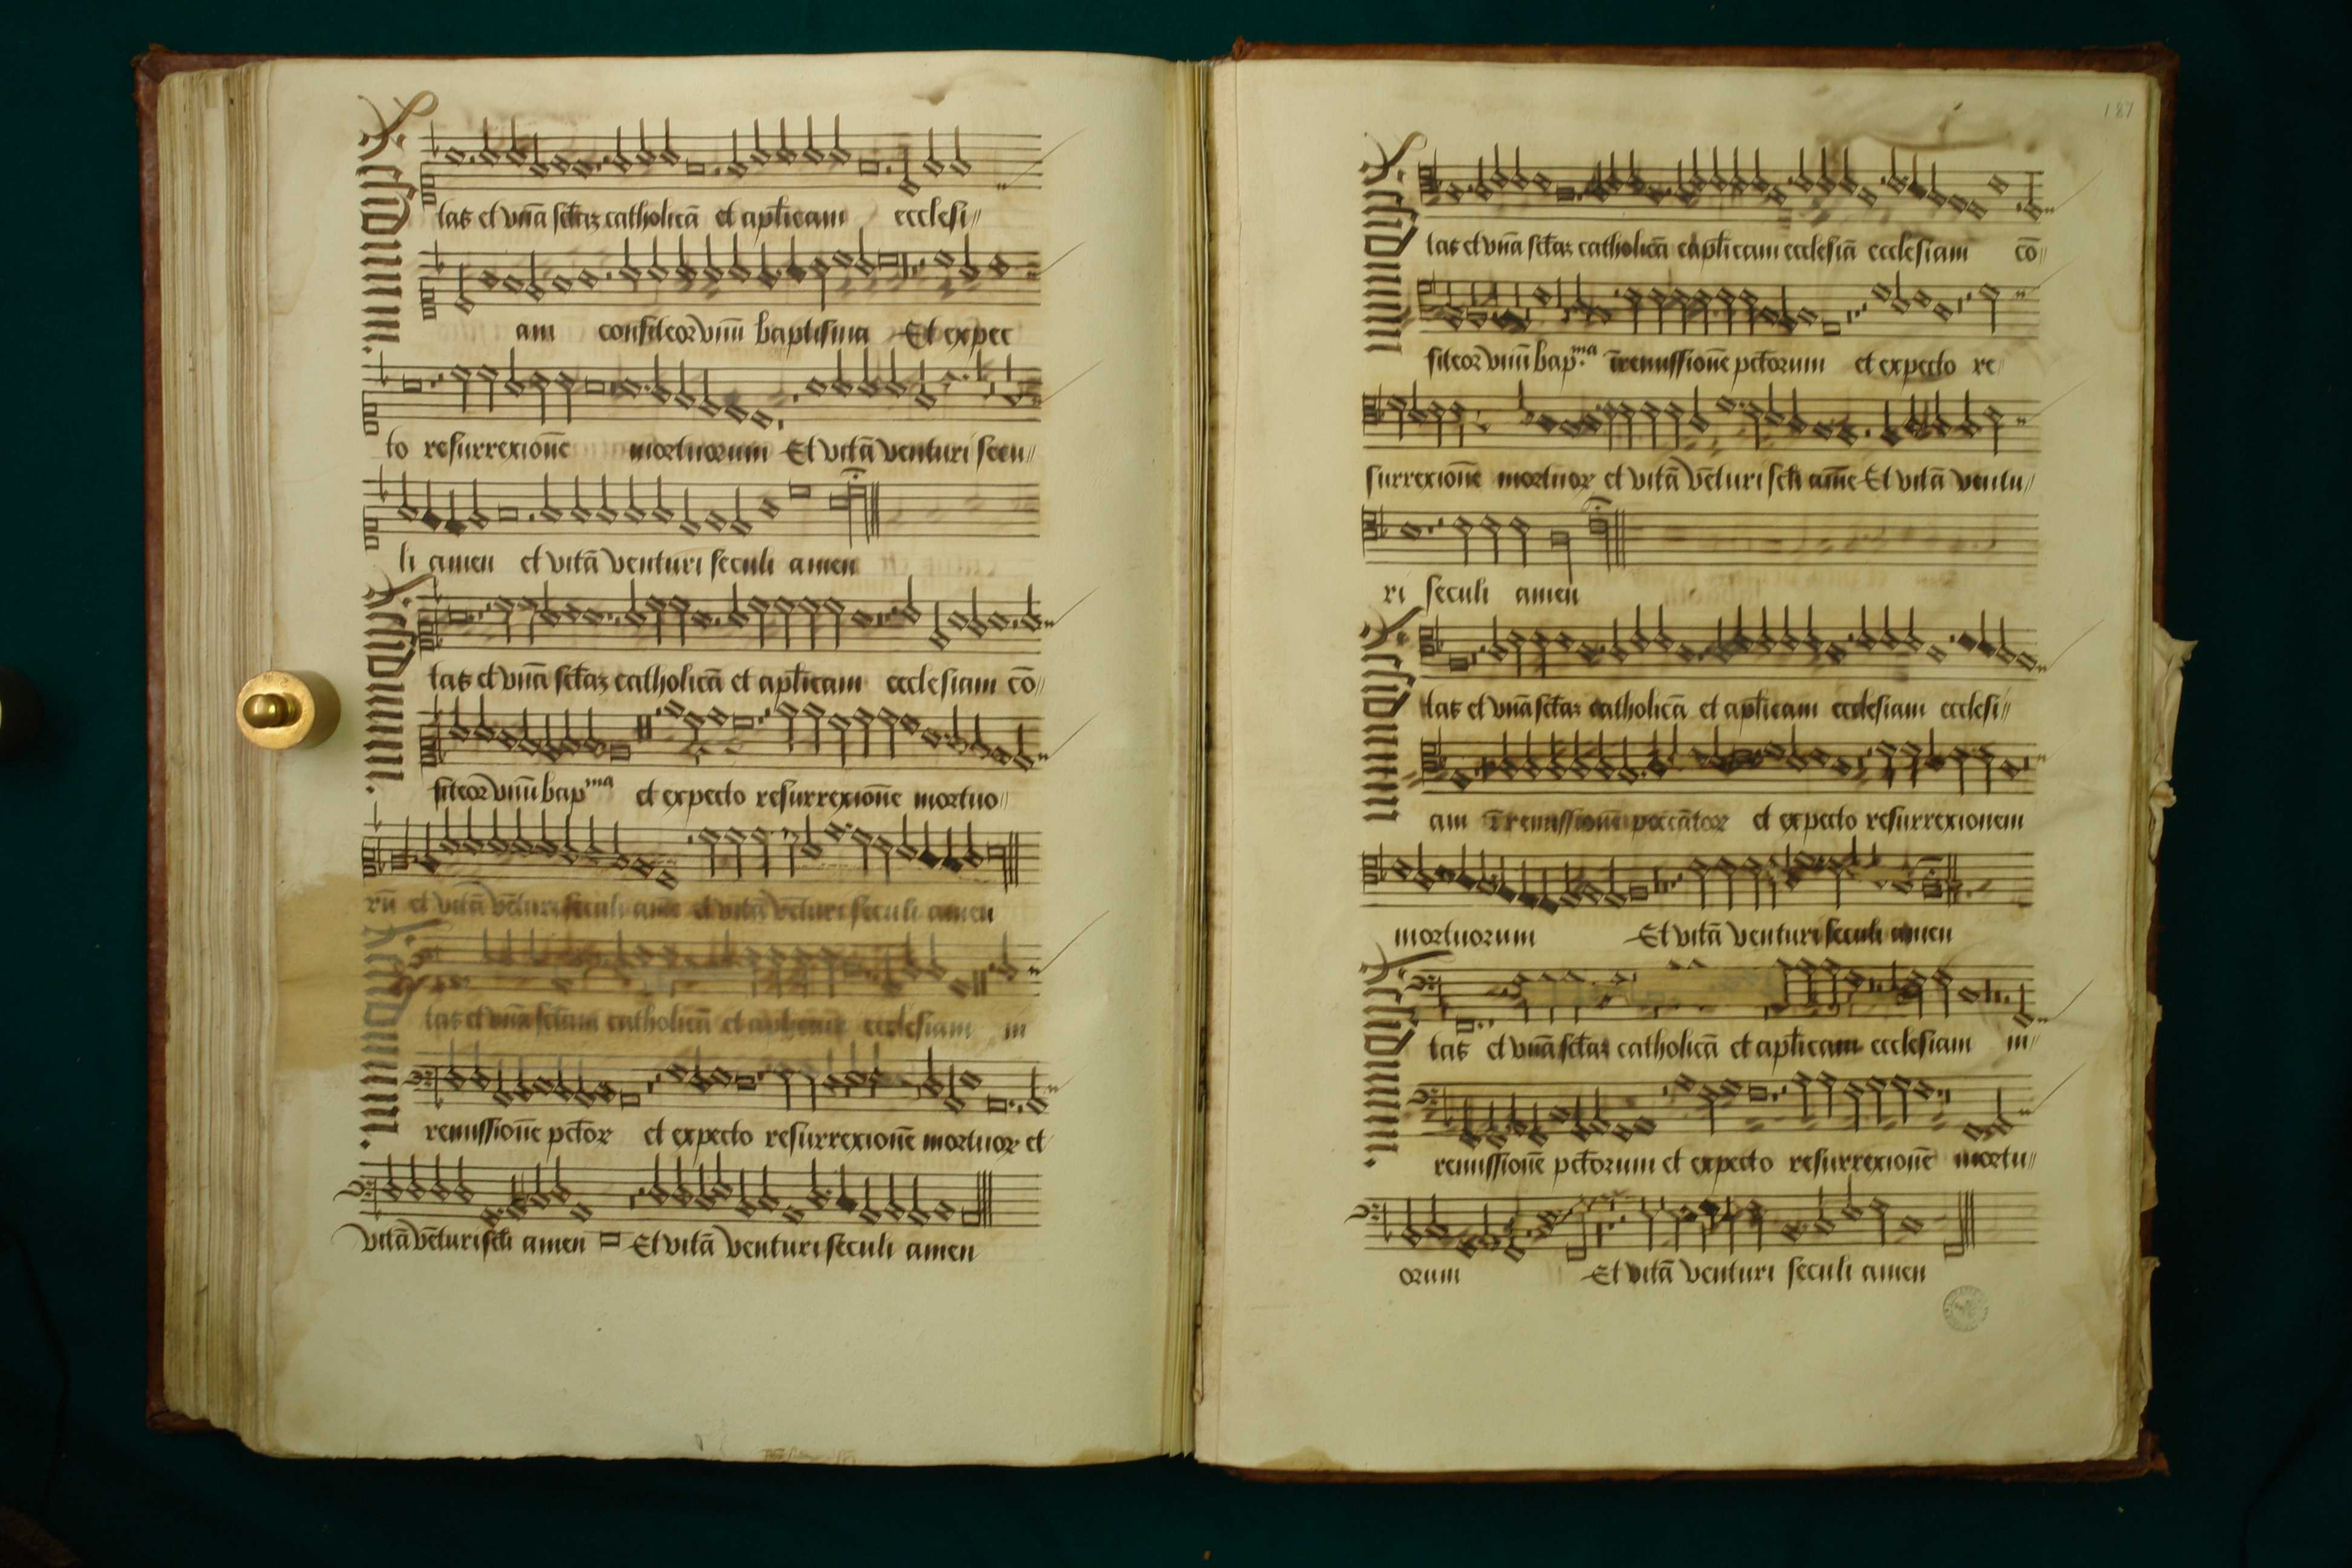 tas et vnā sctāz catholicā et aplicam ecclesi〃
am confiteor vnū baptisma Et expec
to resurrexionē mortuorum Et vitā venturi secu〃
li amen et vitā venturi seculi amen
tas et vnā sctāz catholicā et aplicam ecclesiam cō〃
fiteor vnū bapᵐᵃ et expecto resurrexionē mortuo〃
rū et vitā vēturi seculi amē et vitā vēturi seculi amen
tas et vnā sctam catholicā et ecclesiam in
remissionē pctor et expecto resurrexionē mortuor et
vitā vēturi scli amen Et vitā venturi seculi amen
187
tas et vnā sctāz catholicā aplicam ecclesiā ecclesiam cō〃
fiteor vnū bap.ᵐᵃ ī remissionē pctorum et expecto re〃
surrexionē mortuor et vitā vēturi scli amē Et vitā ventu〃
ri seculi amen
tas et vnā sctāz catholicā et aplicam ecclesiam ecclesi〃
am ī remissionē peccātor et expecto resurrexionem
mortuorum Et vitā venturi seculi amen
tas et vnā sctāz catholicā et aplicam ecclesiam in〃
remissionē pctorum et expecto resurrexionē mortu〃
orum Et vitā venturi seculi amen